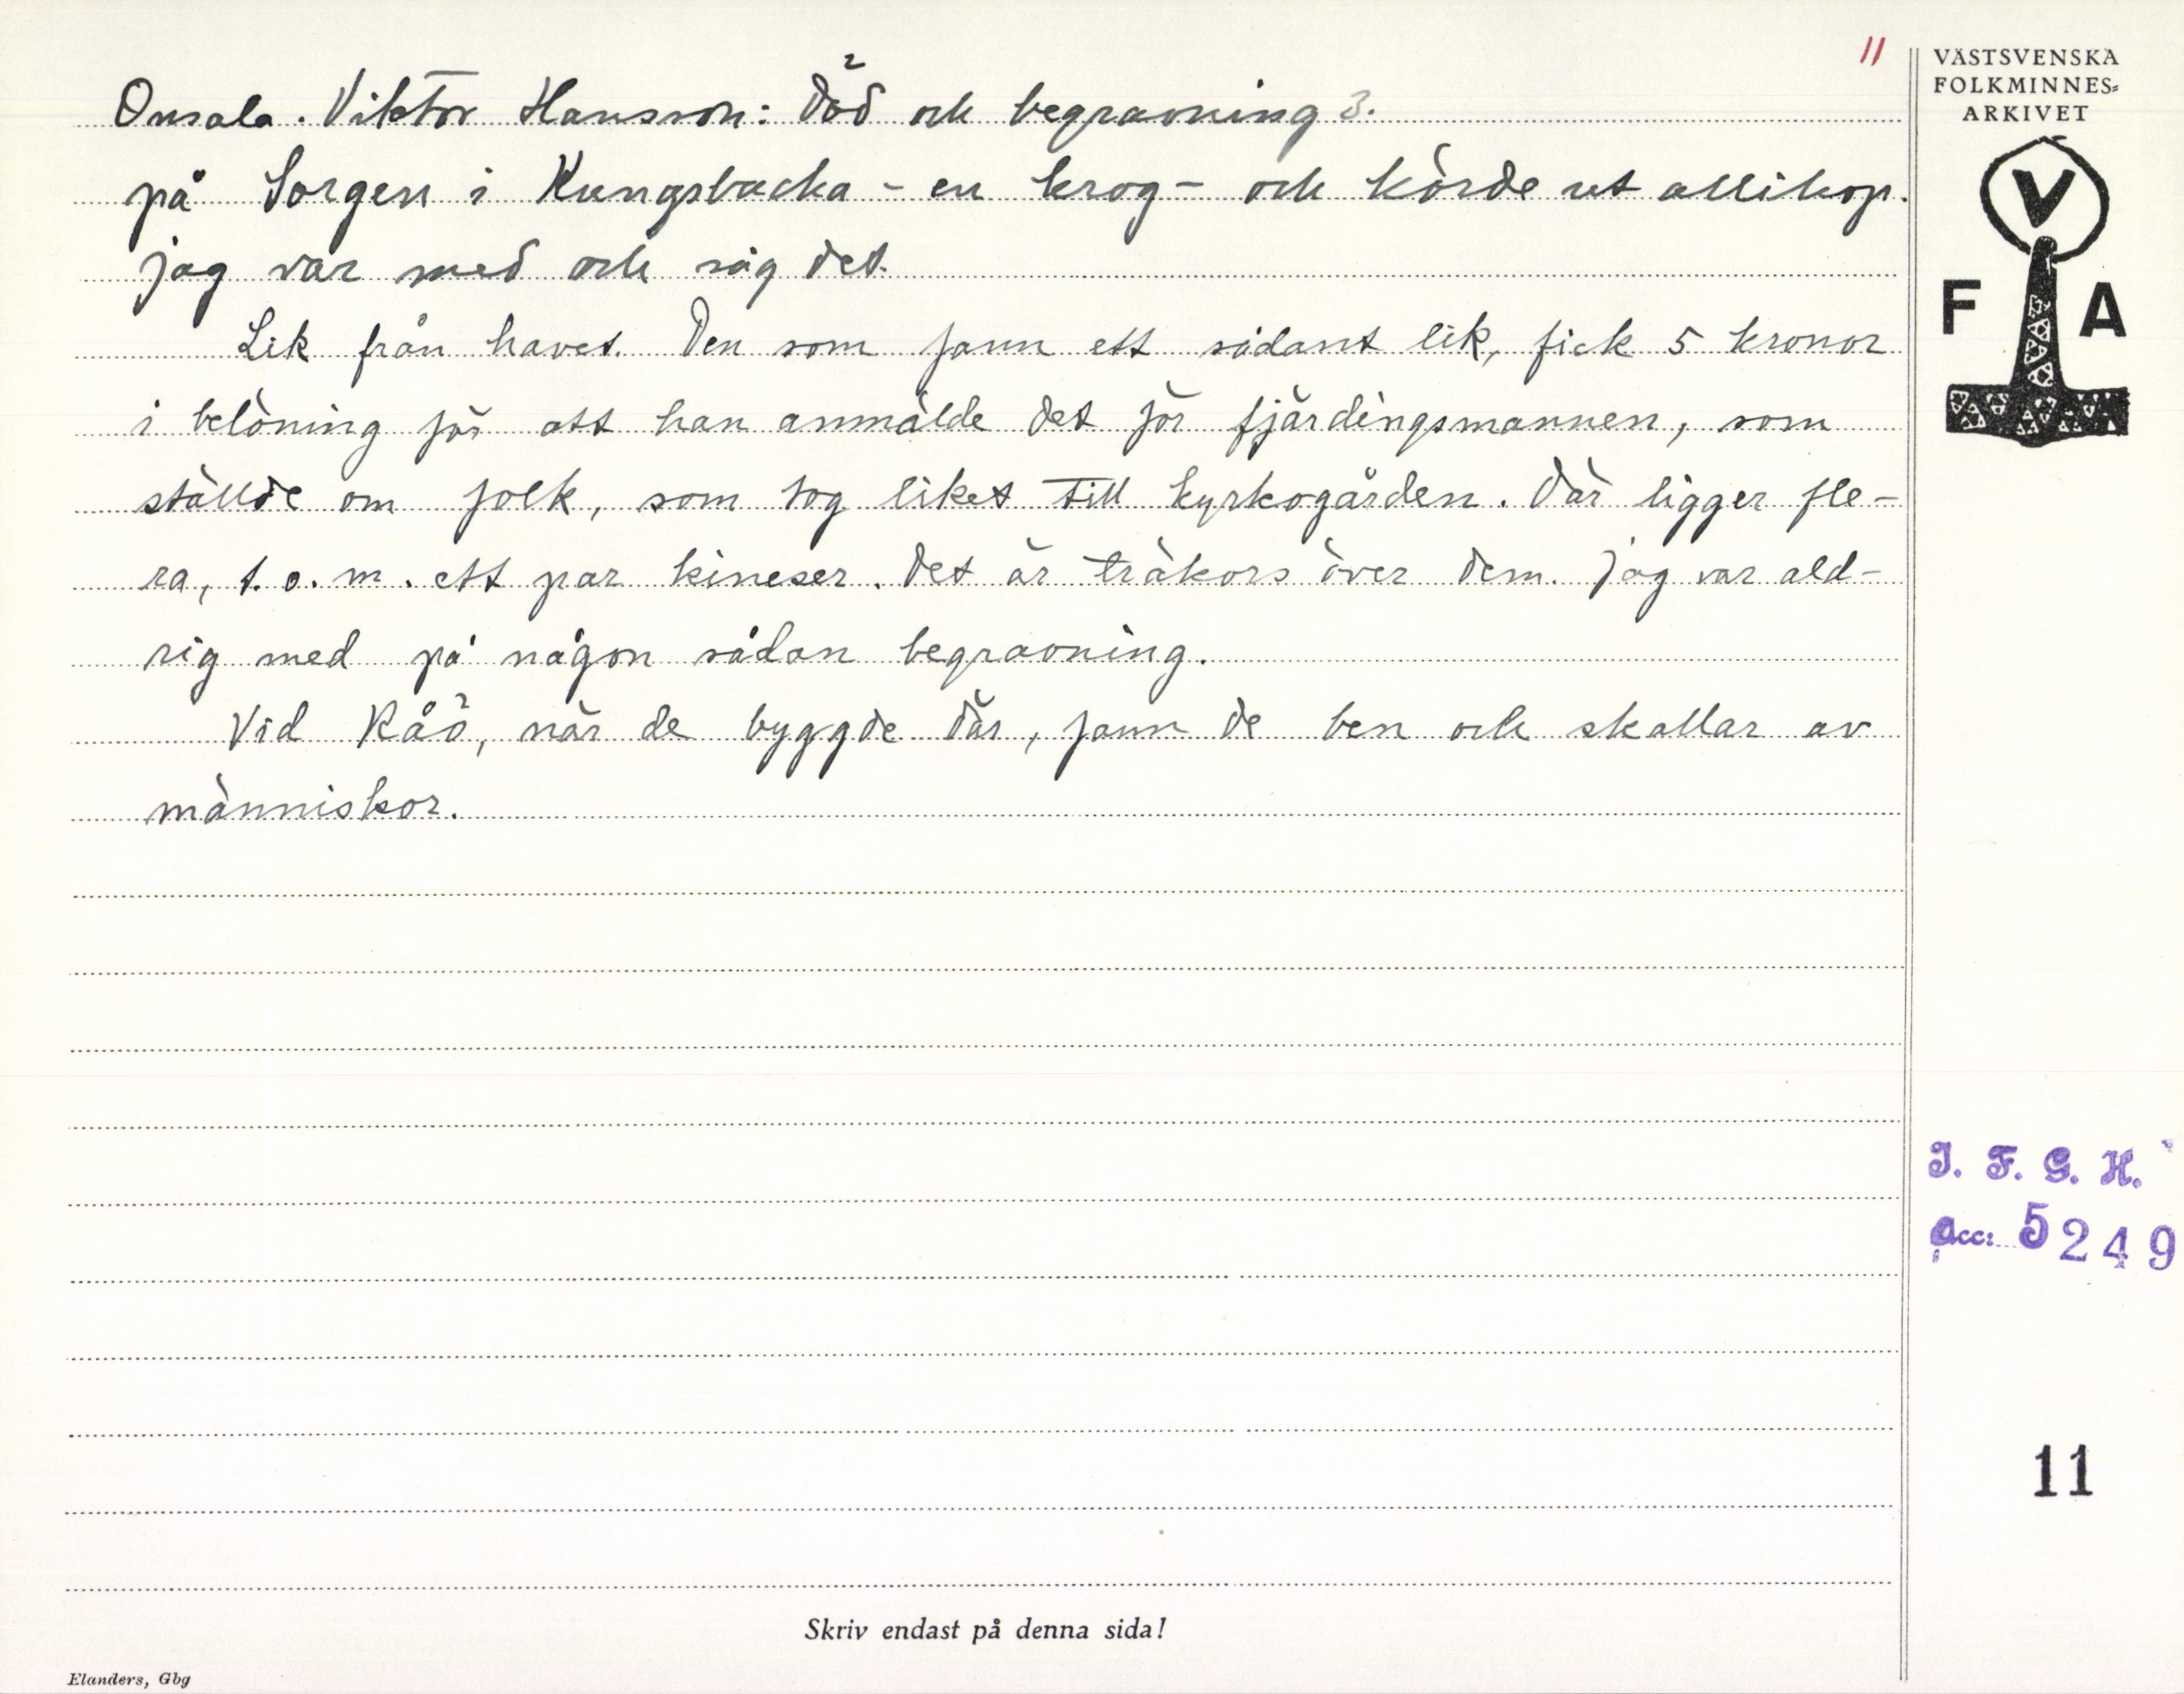 11
Onsala. Viktor Hansson: Död och begravning 3.
på Sorgen i Kungsbacka - en krog - och körde ut allihop.
jag var med och såg det.
Lik från havet. Den som fann ett sådant lik, fick 5 kronor
i belöning för att han anmälde det för fjärdingsmannen, som
ställde om folk, som tog liket till kyrkogården. Där ligger fle-
ra, t.o.m. ett par kineser. Det är träkors över dem. Jag var ald-
rig med på någon sådan begravning.
Vid Råö, när de byggde där, fann de ben och skallar av
människor.
Skriv endast på denna sida!
Elanders, Gbg
VÄSTSVENSKA
FOLKMINNES-
ARKIVET
V
F A
I. F. G. H.
Acc: 5249
11